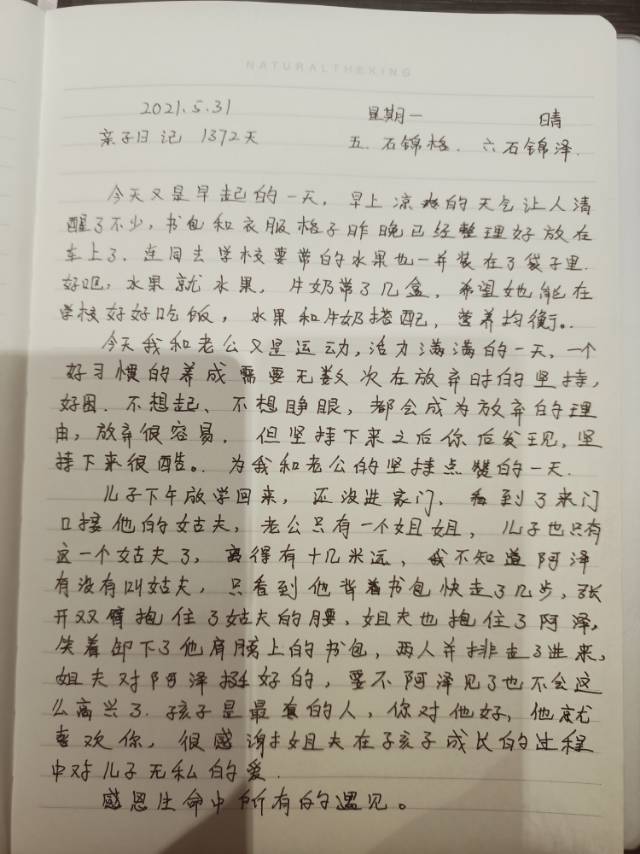 NATURALTHEKING
2021.5.31 星期一 晴
亲子日记 1372天 五.石锦格.六石锦泽.
今天又是早起的一天,早上凉爽的天气让人清
醒了不少,书包和衣服格子昨晚已经整理好放在
车上了.连同去学校要带的水果也一并装在了袋子里.
好吧,水果就水果,牛奶带了几盒,希望她能在
学校好好吃饭,水果和牛奶搭配,营养均衡。.
今天我和老公又是运动,活力满满的一天,一个
好习惯的养成需要无数次在放弃时的坚持,
好困.不想起、不想睁眼,都会成为放弃的理
由,放弃很容易.但坚持下来之后你后发现,坚
持下来很酷。.为我和老公的坚持点赞的一天.
儿子下午放学回来,还没进家门.看到了来门
口接他的姑夫,老公只有一个姐姐,儿子也只有
这一个姑夫了,离得有十几米远,我不知道阿泽
有没有叫姑夫,只看到他背着书包快走了几步,张
开双臂抱住了姑夫的腰,姐夫也抱住了阿泽,
笑着卸下了他肩膀上的书包,两人并排走了进来,
姐夫对阿泽挺好的,要不阿泽见了也不会这
么高兴了.孩子是最真的人,你对他好,他就
喜欢你,很感谢姐夫在子孩子成长的过程
中对儿子无私的爱.
感恩生命中所有的遇见。